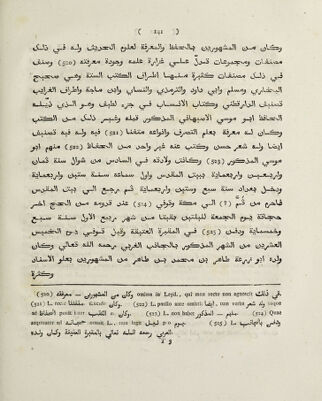 ( ١٤١ )
وكان من المشهورين بالحفظ والمعرفة لعلوم الحديث وله في ذلك
مصنفات ومجموعات تدل على غزارة علمه وجودة معرفته (520) وصنف
في ذلك مصنفات كثيرة منها اطراف الكتب الستة وهي صحيح
البخاري ومسلم وابي داود والترمذي والنسائي وابن ماجة واطراف الغرايب
تصنيف الدارقطني وكتاب الانساب في جزء لطيف وهو الذي ذيله
الحافظ ابو موسى الاصبهاني المذكور قبله وغير ذلك من الكتب
وكان له معرفة بعلم التصوف وانواعه متفننا (521) فيه وله فيه تصنيف
ايضا وله شعر حسن وكتب عنه غير واحد من الحفاظ (522) منهم ابو
موسى المذكور (523) وكانت ولادته في السادس من شوال سنة ثمان
واربعين واربعماية ببيت المقدس واول سماعه سنة ستين واربعماية
ودخل بغداد سنة سبع وستين واربعماية ثم رجع الى بيت المقدس
فاحرم من ثم (?) الى مكة وتوفي (524) عند قدومه من الحج اخر
حجاته يوم الجمعة لليلتين بقيتا من شهر ربيع الاول سنة سبع
وخمسماية ودفن (525) في المقبرة العتيقة وقيل توفي يوم الخميس
العشرين من الشهر المذكور بالجانب الغربي رحمه الله تعالى وكان
ولده ابو زرعة طاهر بن محمد بن طاهر من المشهورين بعلو الاسناد
وكثرة
(520) وكان من المشهورين — معرفته omissa in Lepil., qui mox recte non agnoscit في ذلك
(521) L. (522) L. paullo ante omittit ايضا, mox وله شعر
(523) L. non habet منهم — المذكور (524)
(525) L. ودفن بالجانب
الغربي رحمه الله تعالى بالمقبرة العتيقة وكان ولده